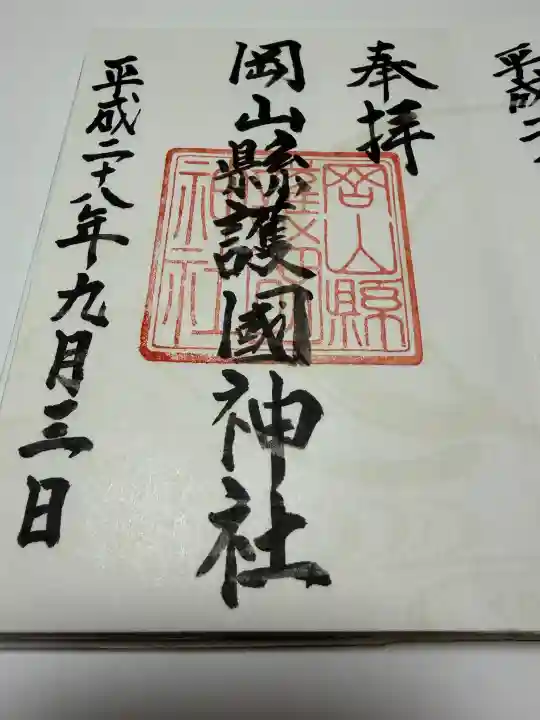 平成二
奉拝
岡山縣護國神社
岡山縣
護國
神社
平成二十八年九月三日